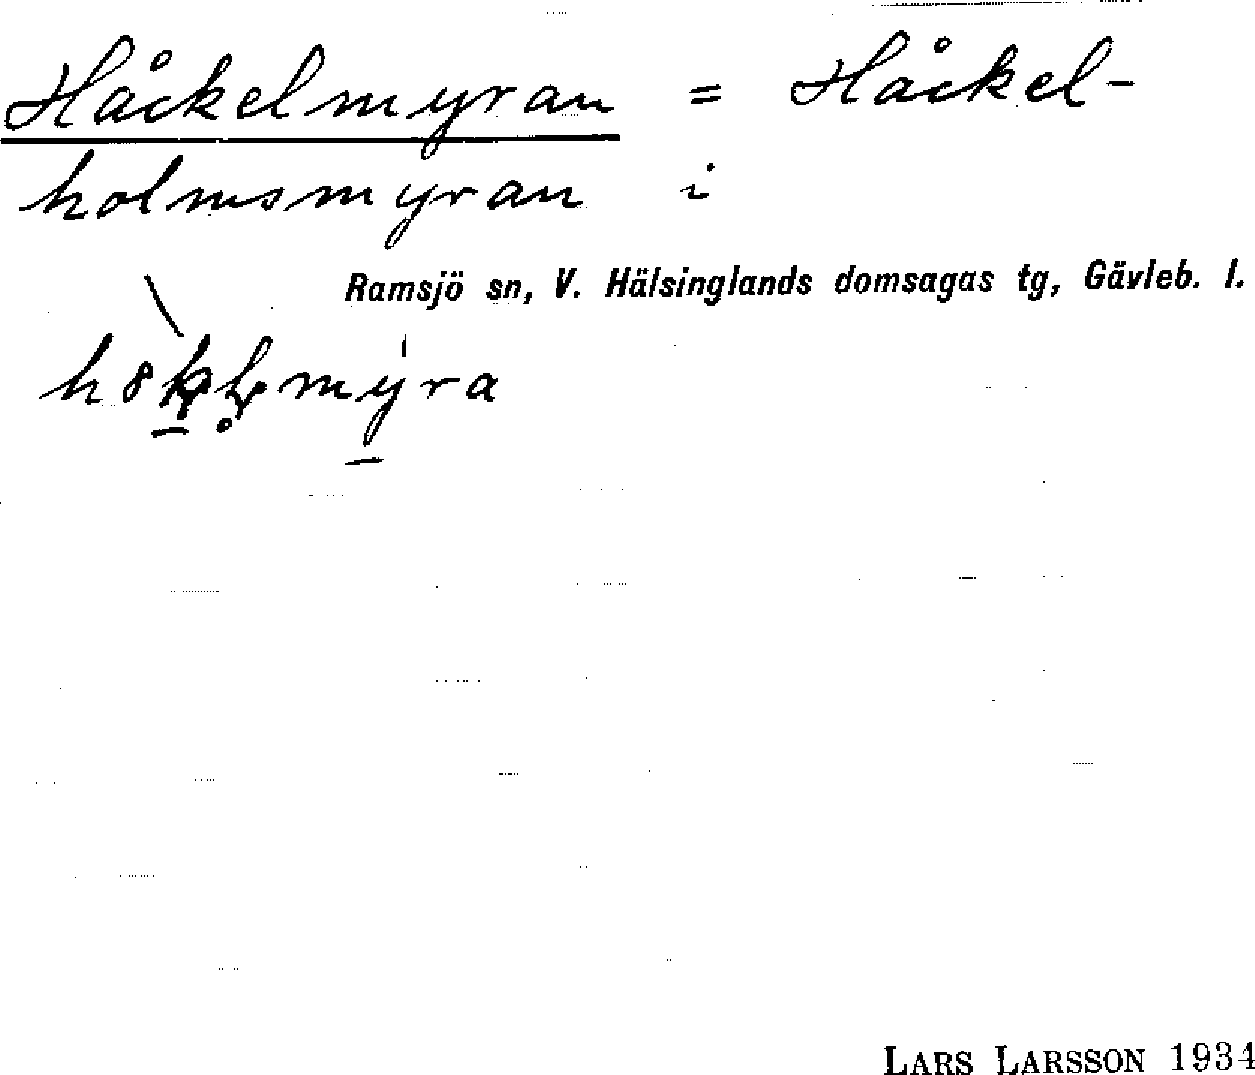 Håckelmyran = Håckel-
holmsmyran i
Ramsjö sn, V. Hälsinglands domsagas tg, Gävleb. l.
LARS LARSSON 1934